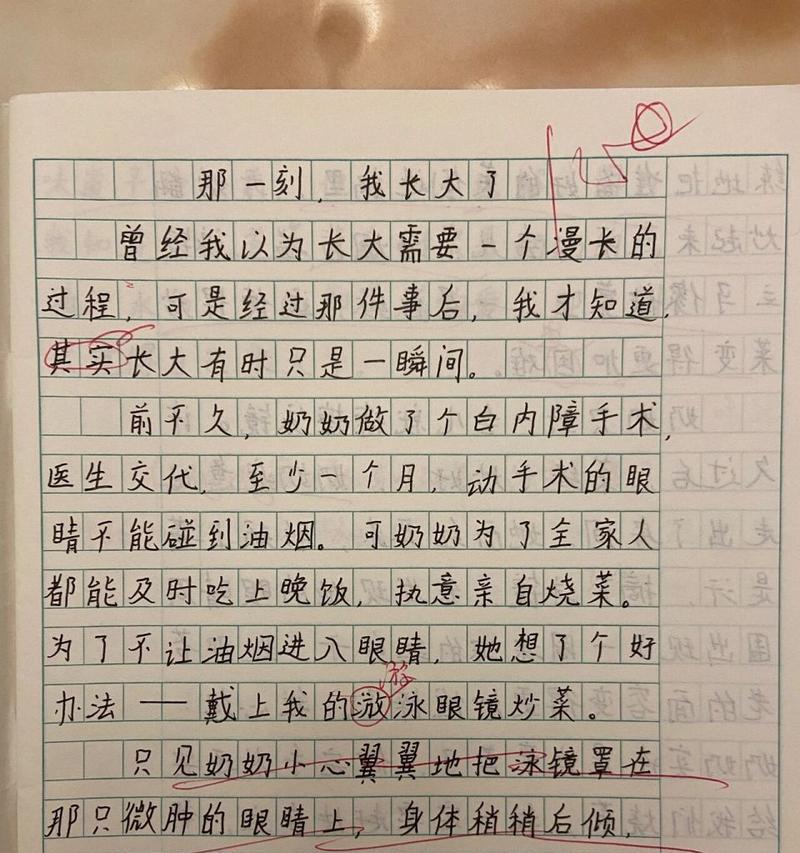 那一刻，我长大了
曾经我以为长大需要一个漫长的
过程，可是经过那件事后，我才知道，
其实长大有时只是一瞬间。
前不久，奶奶做了个白内障手术，
医生交代，至少一个月，动手术的眼
睛不能碰到油烟。可奶奶为了全家人
都能及时吃上晚饭，执意亲自烧菜。
为了不让油烟进入眼睛，她想了个好
游
办法——戴上我的游泳眼镜炒菜。
只见奶奶小心翼翼地把泳镜罩在
那只微肿的眼睛上，身体稍稍后倾，